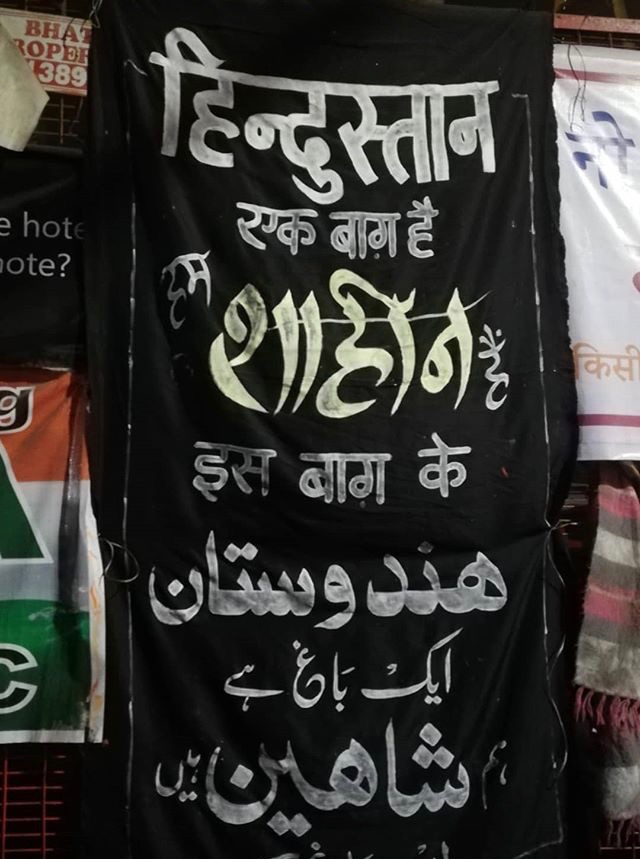 BHA
ROPER
389
e hote
note?
g
A
C
हिन्दुस्तान
एक बाग़ है
हम शाहीन हैं
इस बाग़ के
ھندوستان
ایک بَاغ ہے
ہم شاھین ہیں
किसी